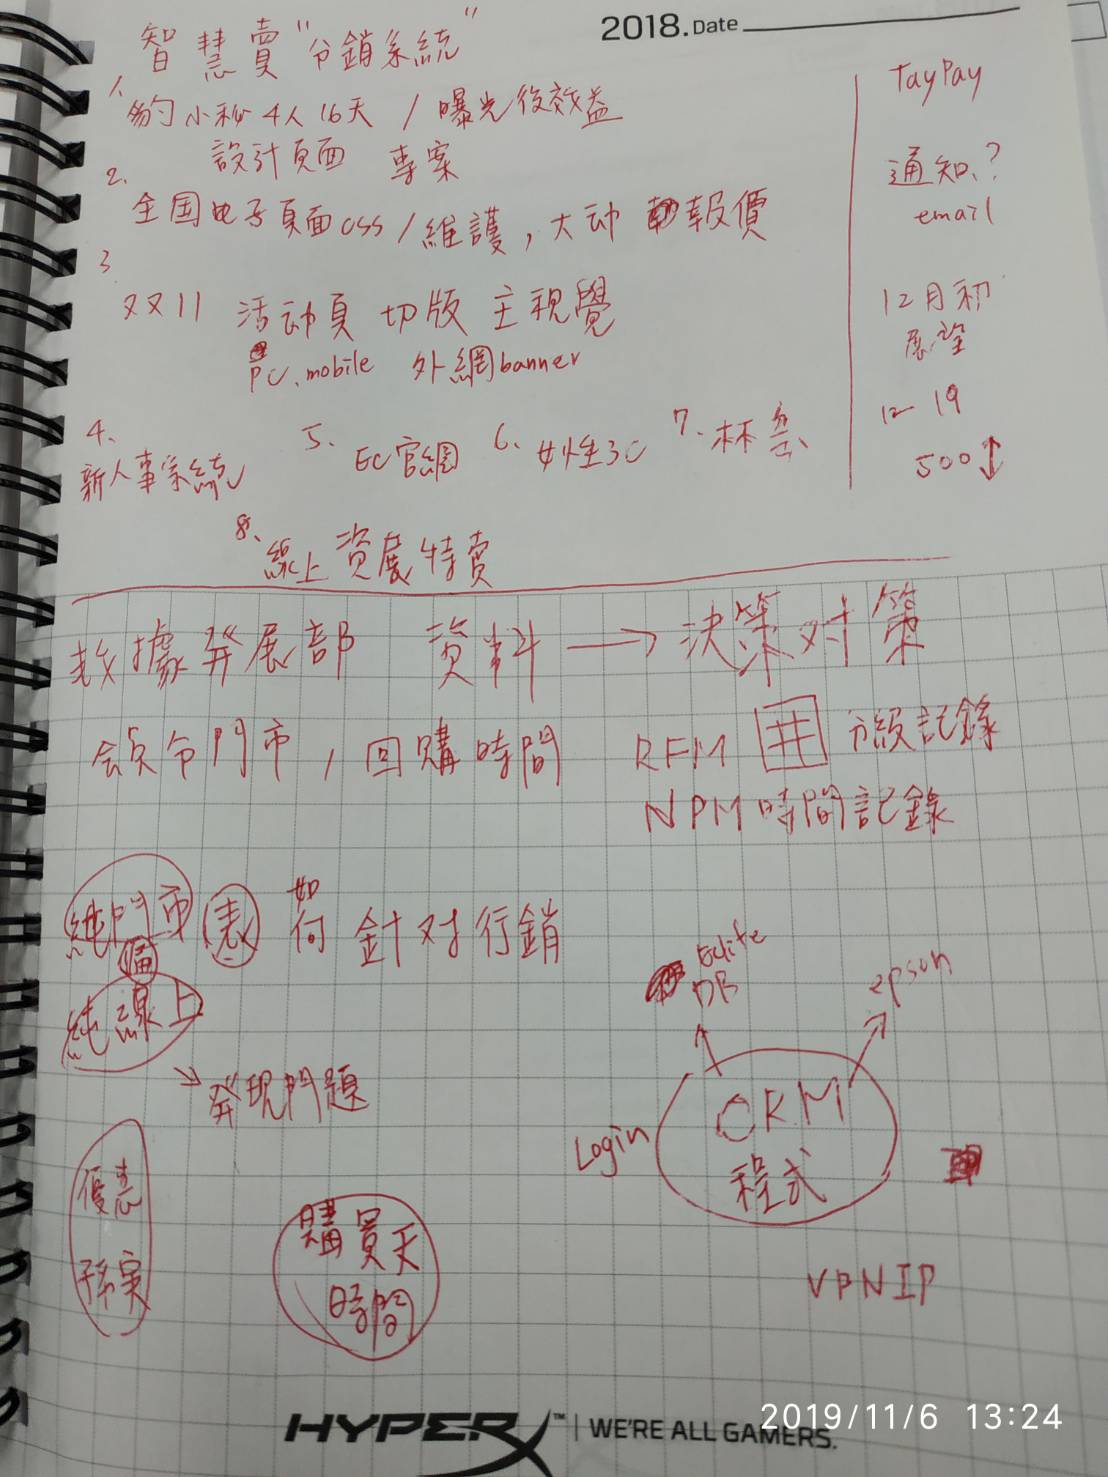 2018. Date
智慧賣"分銷系統"
1、
豹小秘 4人 16天 / 曝光後效益
設計頁面 專案
2、
全国电子頁面 css / 維護, 大动 報價
3
双双11 活动頁 切版 主視覺
PC、mobile 外網banner
4、新人事系統
5、EC官網
6、女性3C
7、林
8、線上資展特卖
TayPay
通知?
email
12月初
展望
12 19
500↕
数據発展部 資料 → 決策对策
会員分門市, 回購時間
RFM 井 分級記錄
NPM 時間記錄
純門市 表 如何 針对行銷
純線上
→ 発現問題
優惠
購買天
時間
Edite
DB
epson
Login
CRM
程式
VPN IP
HYPERX™ | WE'RE ALL GAMERS.
2019/11/6 13:24